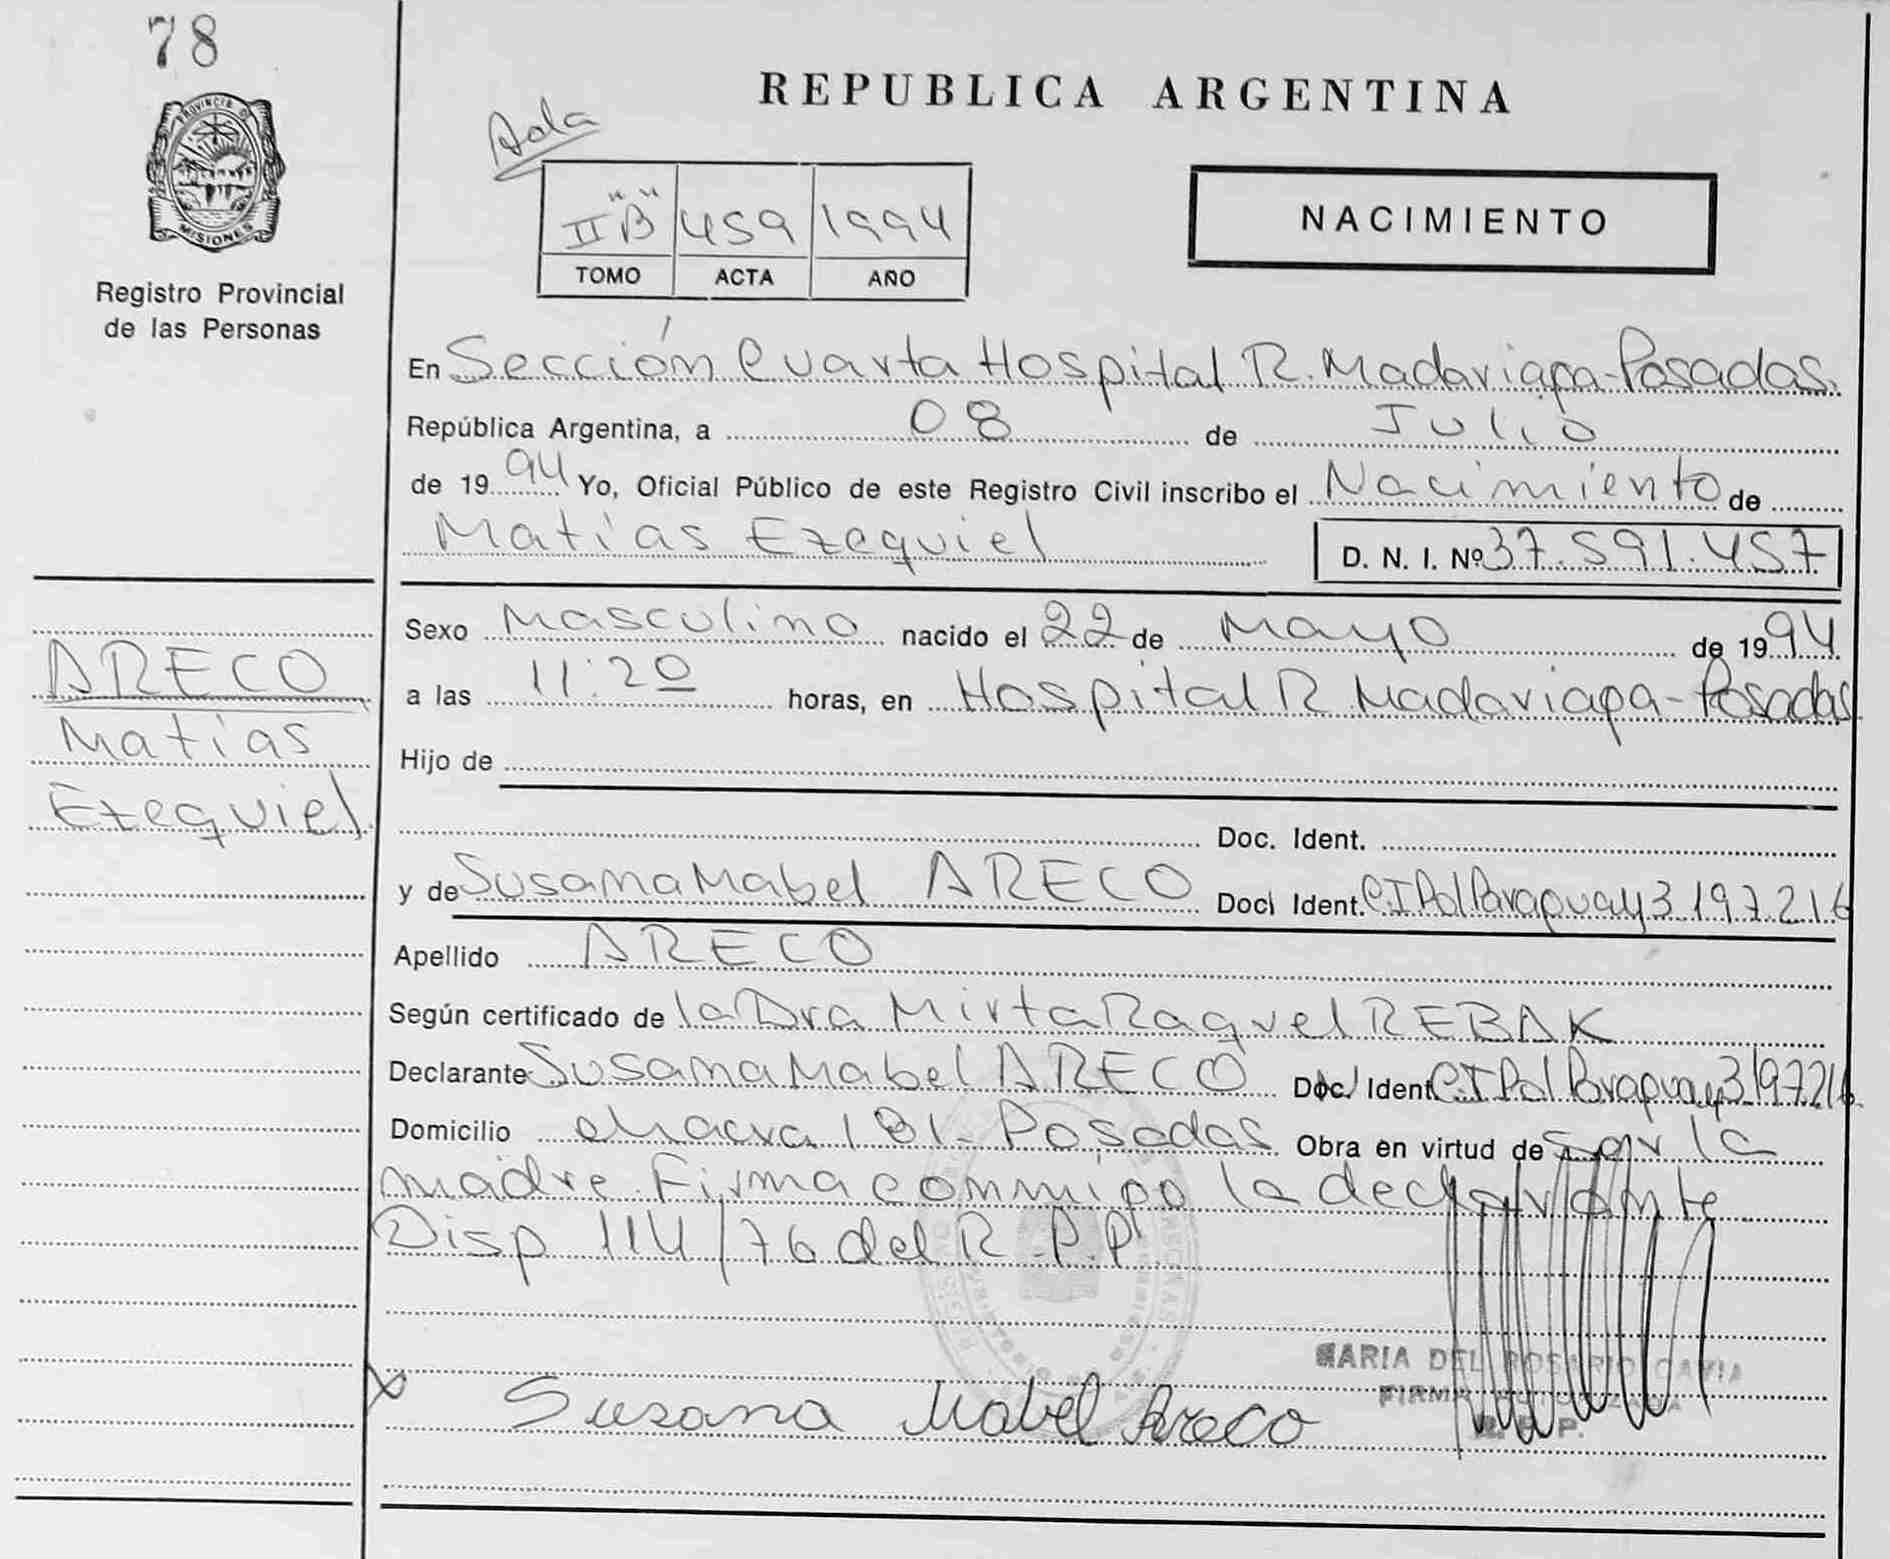 78
PROVINCIA DE
MISIONES
Registro Provincial
de las Personas
ARECO
Matías
Ezequiel
REPUBLICA ARGENTINA
II "B" 459 1994
TOMO ACTA AÑO
NACIMIENTO
En Sección Cuarta Hospital R. Madariaga-Posadas.
República Argentina, a 08 de Julio
de 1994 Yo, Oficial Público de este Registro Civil inscribo el Nacimiento de
Matías Ezequiel D. N. I. Nº 37.591.457
Sexo Masculino nacido el 22 de Mayo de 1994
a las 11:20 horas, en Hospital R Madariaga-Posadas
Hijo de
Doc. Ident.
y de Susana Mabel ARECO Doc Ident. C.I Pol Paraguay 3197216
Apellido ARECO
Según certificado de la Dra Mirta Raquel REBAK
Declarante Susana Mabel ARECO Doc Ident C.I Pol Paraguay 3197216
Domicilio chacra 181- Posadas Obra en virtud de ser la
madre. Firma conmigo la declarante
Disp 114/76 del R.P.P
MARIA DEL ROSARIO
FIRMA AUTORIZADA
R. P. P.
Susana Mabel Areco